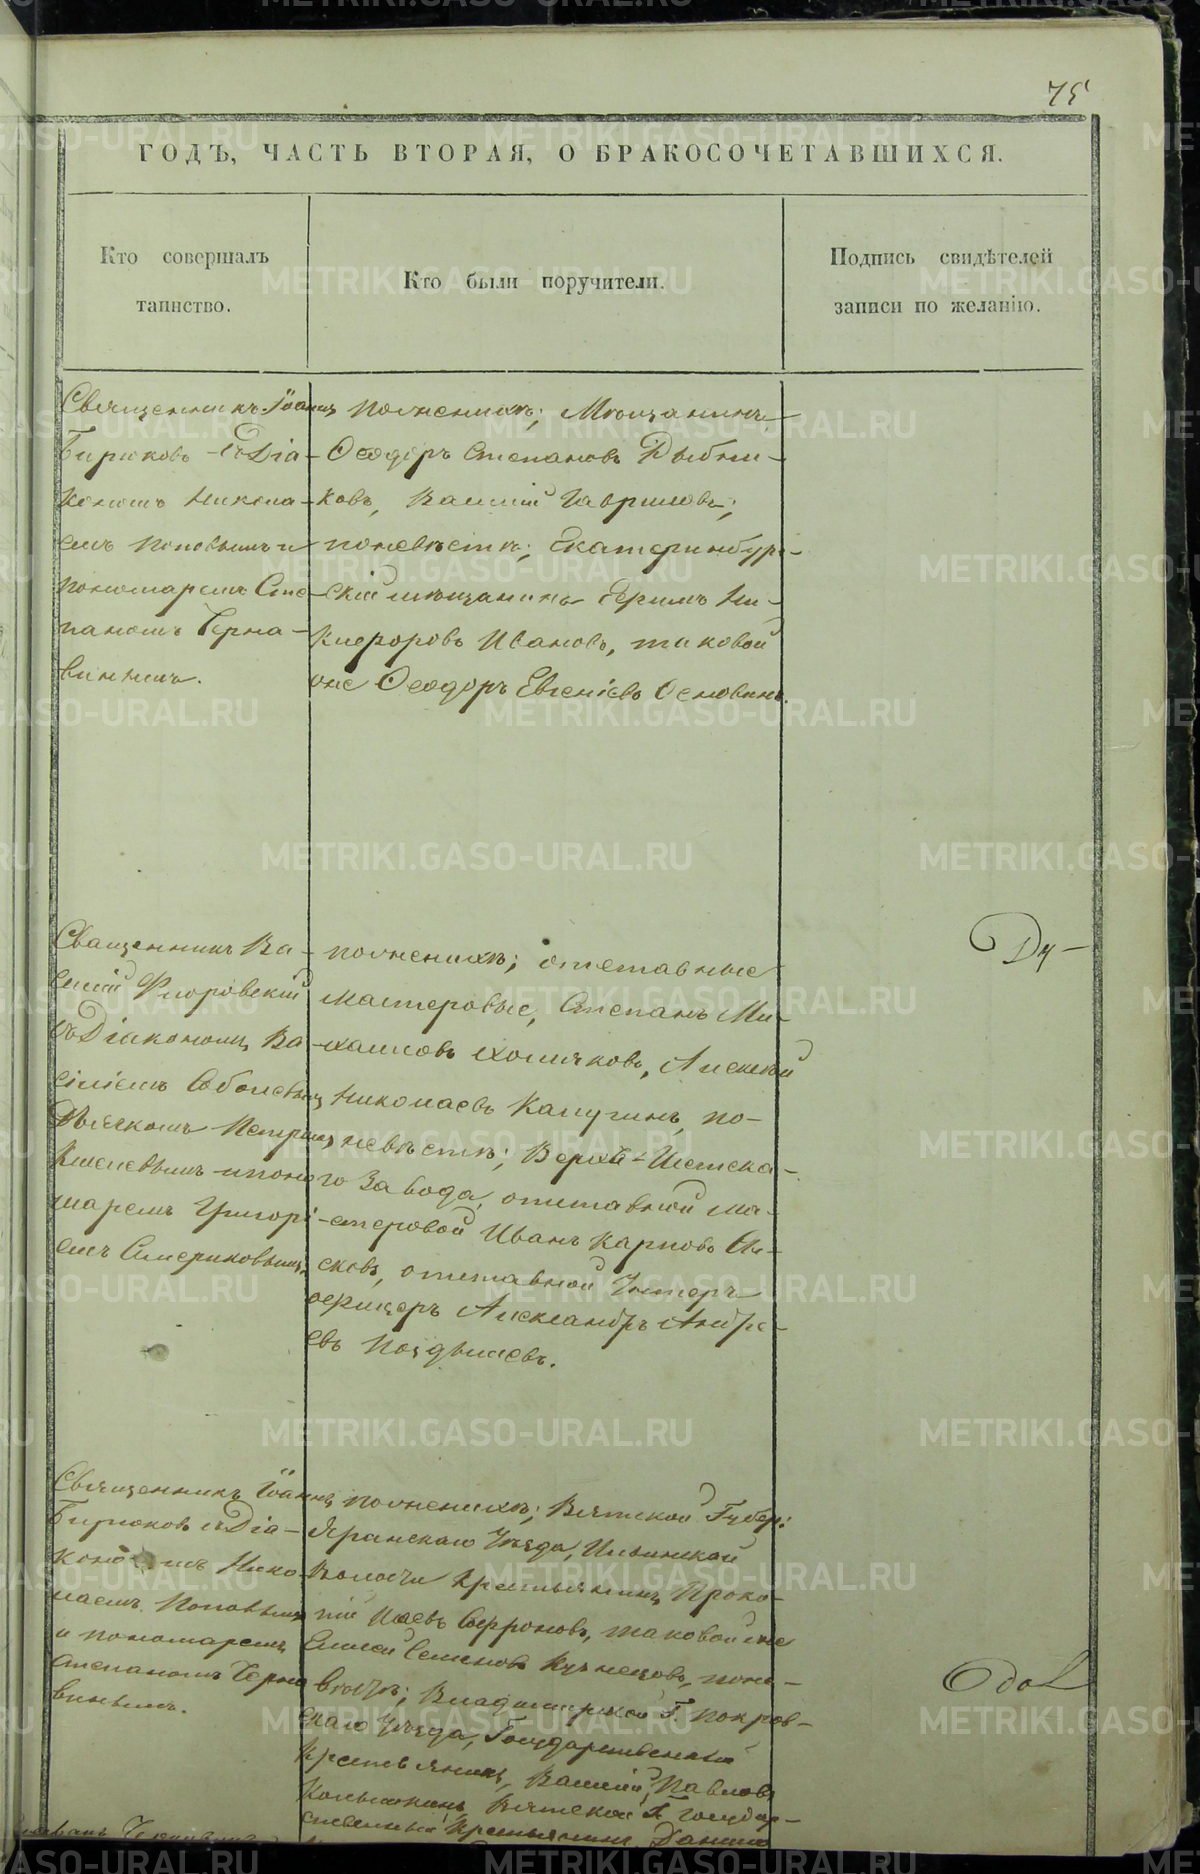 75
ГОДЪ, ЧАСТЬ ВТОРАЯ, О БРАКОСОЧЕТАВШИХСЯ.
Кто совершалъ
таинство.
Кто были поручители.
Подпись свидѣтелей
записи по желанію.
Священникъ Іоаннъ
Бирюковъ съ Діа-
кономъ Никола-
емъ Поповымъ и
пономаремъ Сте-
паномъ Черна-
винымъ.
по женихѣ; Мѣщанинъ
Ѳеодоръ Степановъ
ковъ, Василій Гавриловъ;
по невѣстѣ; Екатеринбург-
скій мѣщанинъ Ефимъ Ни-
кифоровъ Ивановъ, таковой
же Ѳеодоръ Евгеніевъ Основинъ.
Священникъ Ва-
силій Флоровскій
съ Діакономъ Ва-
силіемъ Соболевымъ
Дьячкомъ Петромъ
Киселевымъ и поно-
маремъ Григорі-
емъ
по женихѣ; отставные
мастеровые, Степанъ Ми-
хаиловъ Хомяковъ, Алексѣй
Николаевъ Капугинъ, по
невѣстѣ; Верхъ-Исетска-
го Завода, отставной ма-
стеровой Иванъ Карповъ
сковъ, отставной Унтеръ
офицеръ Александръ Андре-
евъ Поздышевъ.
Священникъ Іоаннъ
Бирюковъ съ Діа-
кономъ Нико-
лаемъ Поповымъ
и пономаремъ
Степаномъ Черна
винымъ.
по женихѣ; Вятской Губер:
Яранскаго Уѣзда, Ильинской
Волости Крестьянинъ Проко-
пій Софроновъ, таковой же
Елисей Семеновъ Кузнецовъ, поне-
вѣстѣ; Владимирской Г. Покров-
скаго Уѣзда, Государственный
Крестьянинъ, Василій Павловъ
Вятской Г. Государ-
ственный Крестьянинъ Данило